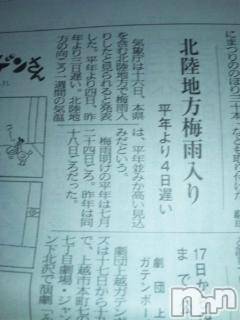 北陸地方梅雨入り
平年より4日遅い
気象庁は十六日、本県
を含む北陸地方で梅雨入
りしたと見られると発表
した。平年より四日、昨
年より三日遅い。北陸地
方の向こう一週間の気温
は、平年並みか高い見込
みだという。
梅雨明けの平年は七月
二十四日ごろ。昨年は同
十八日ごろだった。
17日か
まで
劇団上
ガテンボ
劇団上越ガテン
ズは十七日から十
で、上越市本町七
七ド自劇場・ジャ
ン下北沢で演劇